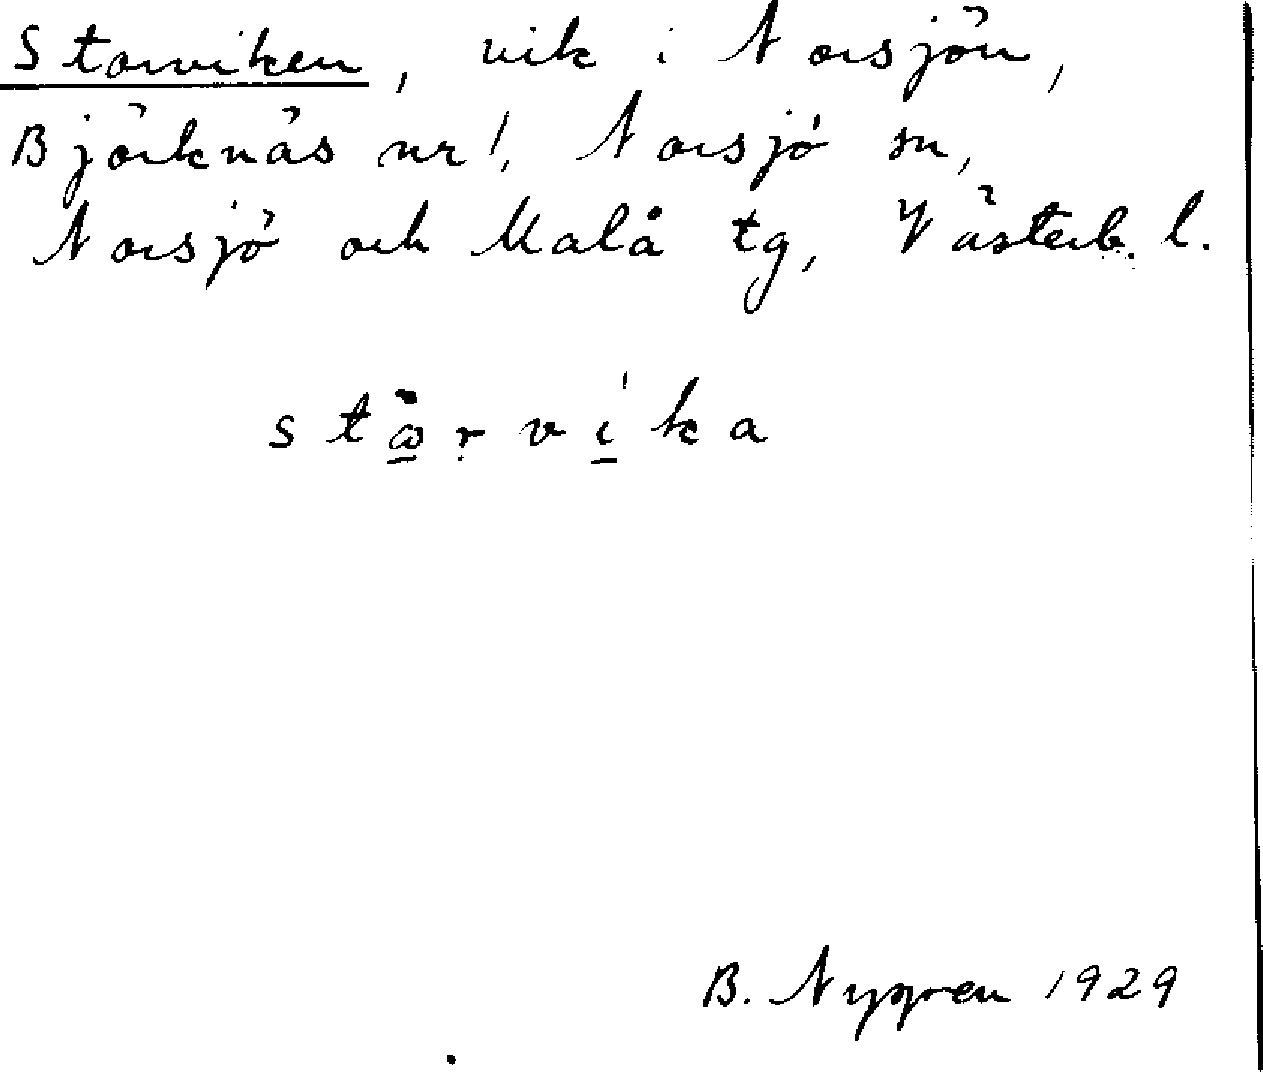 Storviken, vik i Norsjön,
Björknäs nr 1, Norsjö sn,
Norsjö och Malå tg, Västerb. l.
B. Nygren 1929